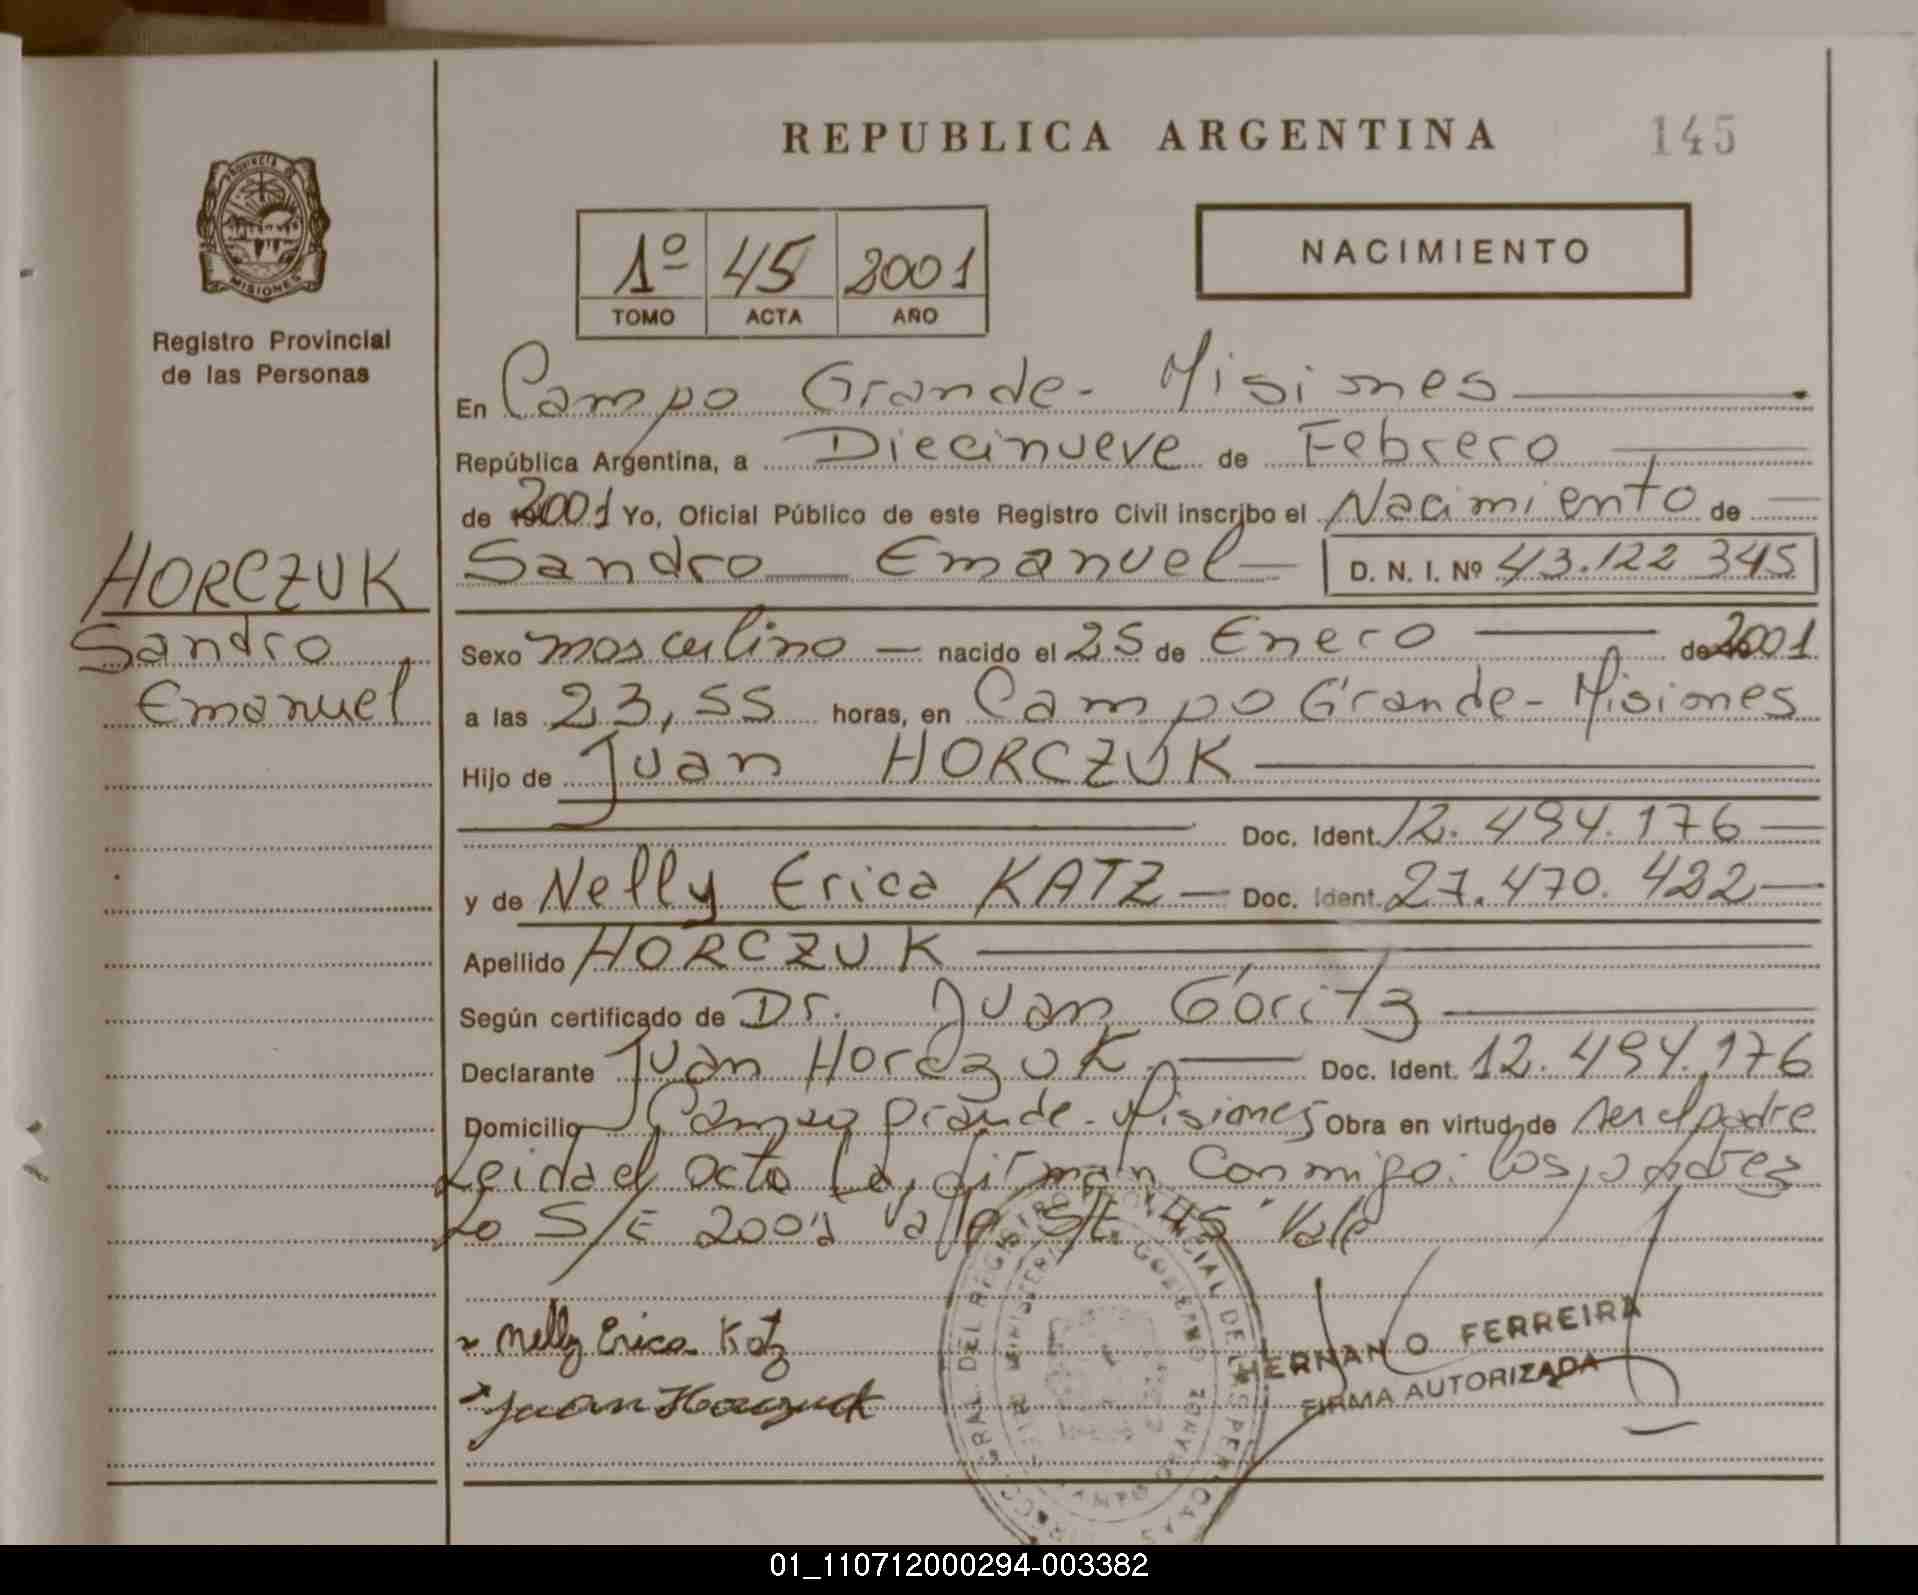 REPUBLICA ARGENTINA
145
PROVINCIA DE
MISIONES
Registro Provincial
de las Personas
1º 45 2001
TOMO ACTA AÑO
NACIMIENTO
En Campo Grande - Misiones
República Argentina, a Diecinueve de Febrero
de 2001 Yo, Oficial Público de este Registro Civil inscribo el Nacimiento de
Sandro Emanuel D. N. I. Nº 43.122 345
HORCZUK
Sandro
Emanuel
Sexo masculino nacido el 25 de Enero de 2001
a las 23,55 horas, en Campo Grande - Misiones
Hijo de Juan HORCZUK
Doc. Ident. 12.494.176
y de Nelly Erica KATZ Doc. Ident. 27.470.422
Apellido HORCZUK
Según certificado de Dr. Juan Góritz
Declarante Juan Horczuk Doc. Ident. 12.494.176
Domicilio Campo Grande - Misiones Obra en virtud de ser el padre
Leida el acta la firman conmigo: los padres
Lo S/E 2001 Vale S/E. 45 Vale
Nelly Erica Katz
Juan Horczuk
FERREIRA
FIRMA AUTORIZADA
01_110712000294-003382